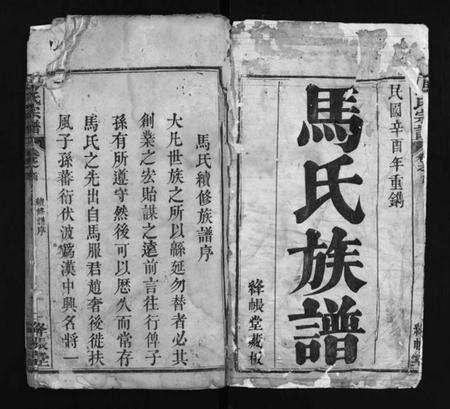 民國辛酉年重鐫
馬氏族譜
絳帳堂藏板
馬氏續修族譜序
大凡世族之所以緜延勿替者必其
創業之宏貽謀之遠前言往行俾子
孫有所遵守然後可以歷久而常存
馬氏之先出自馬服君趙奢後徙扶
風子孫蕃衍伏波為漢中興名將一
氏宗譜
續修譜序
絳帳堂